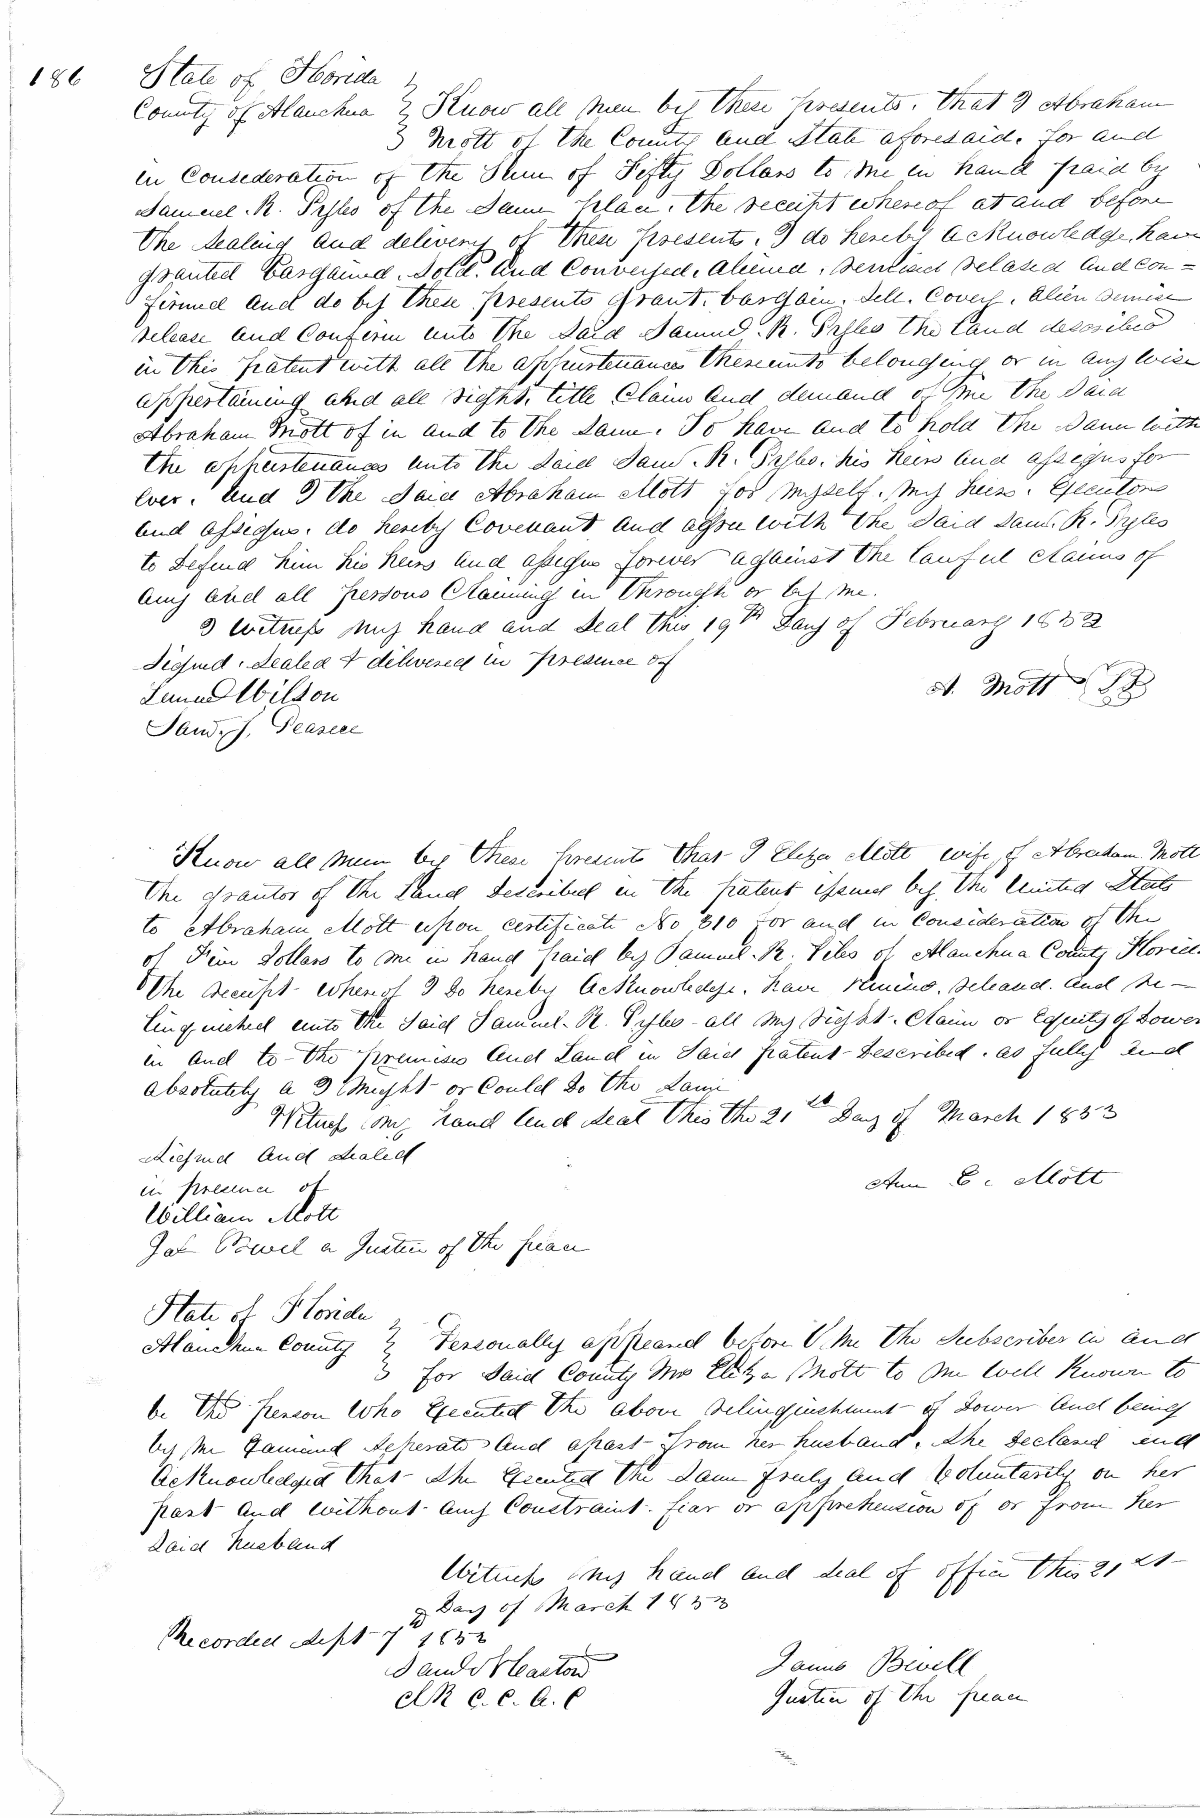 186
State of Florida
County of Alauchua } Know all men by these presents. that I Abraham
Mott of the County and State aforesaid. for and
in Consederation of the Sum of Fifty Dollars to me in hand paid by
Samuel. R. Pyles of the Same place. the receipt whereof at and before
the Sealing and delivery of these presents. I do hereby acknowledge, have
granted bargained. Sold. and Conveyed. aliened. remised relased and con=
firmed and do by these presents grant. bargain. Sell. Covey. alien remise
release and Confirm unto the Said Samuel. R. Pyles the land described
in this patent with all the appurtenances thereunto belonging or in any wise
appertaining and all right. title Claim and demand of me the Said
Abraham Mott of in and to the Same. To have and to hold the Same with
the appurtenances unto the Said Saml. R. Pyles. his heirs and assigns for
ever. and I the Said Abraham Mott for myself. my heirs. Executors
and assigns. do hereby Covenant and agree with the Said Saml. R. Pyles
to Defend him his heirs and assigns forever against the lawful claims of
any and all persons Claiming in through or by me.
I Witness my hand and Seal this 19th Day of February 1853
Signed. Sealed & delivered in presence of
Lemuel Wilson
A. Mott
Saml. J.
Know all men by these presents that I Eliza Mott wife of Abraham Mott
the grantor of the Land Described in the patent issued by the United States
to Abraham Mott upon certificate No 310 for and in Consideration of the
of Five Dollars to me in hand paid by Samuel. R. Piles of Alanchua County Florid
the receipt whereof I do hereby acknowledge. have remise. releasd. and re-
linquished unto the Said Samuel. R. Pyles all my right. Claim or Equity of Dower
in and to the premises and Land in Said patent Described. as fully and
absolutely a I might or Could Do the Same
Witness my hand and Seal this the 21st Day of March 1853
Signed and Sealed
in presence of
Ann E. Mott
William Mott
Jas Bevel a Justice of the peace
State of Florida
Alanchua County } Personally appeared before me the Subscriber in and
for Said County Mrs Eliza Mott to me well Known to
be the person who Executed the above relinquishment of Dower and being
by me Examined Seperate and apart from her husband. She Declared and
Acknowledged that She Executed the Same freely and Voluntarily on her
part and without any Constraint. fear or apprehension of or from her
Said husband
Witness my hand and Seal of office this 21st
Day of March 1853
Recorded Sept 7th 1853
Saml
Clk C. C. A. C
James Bevell
Justice of the peace